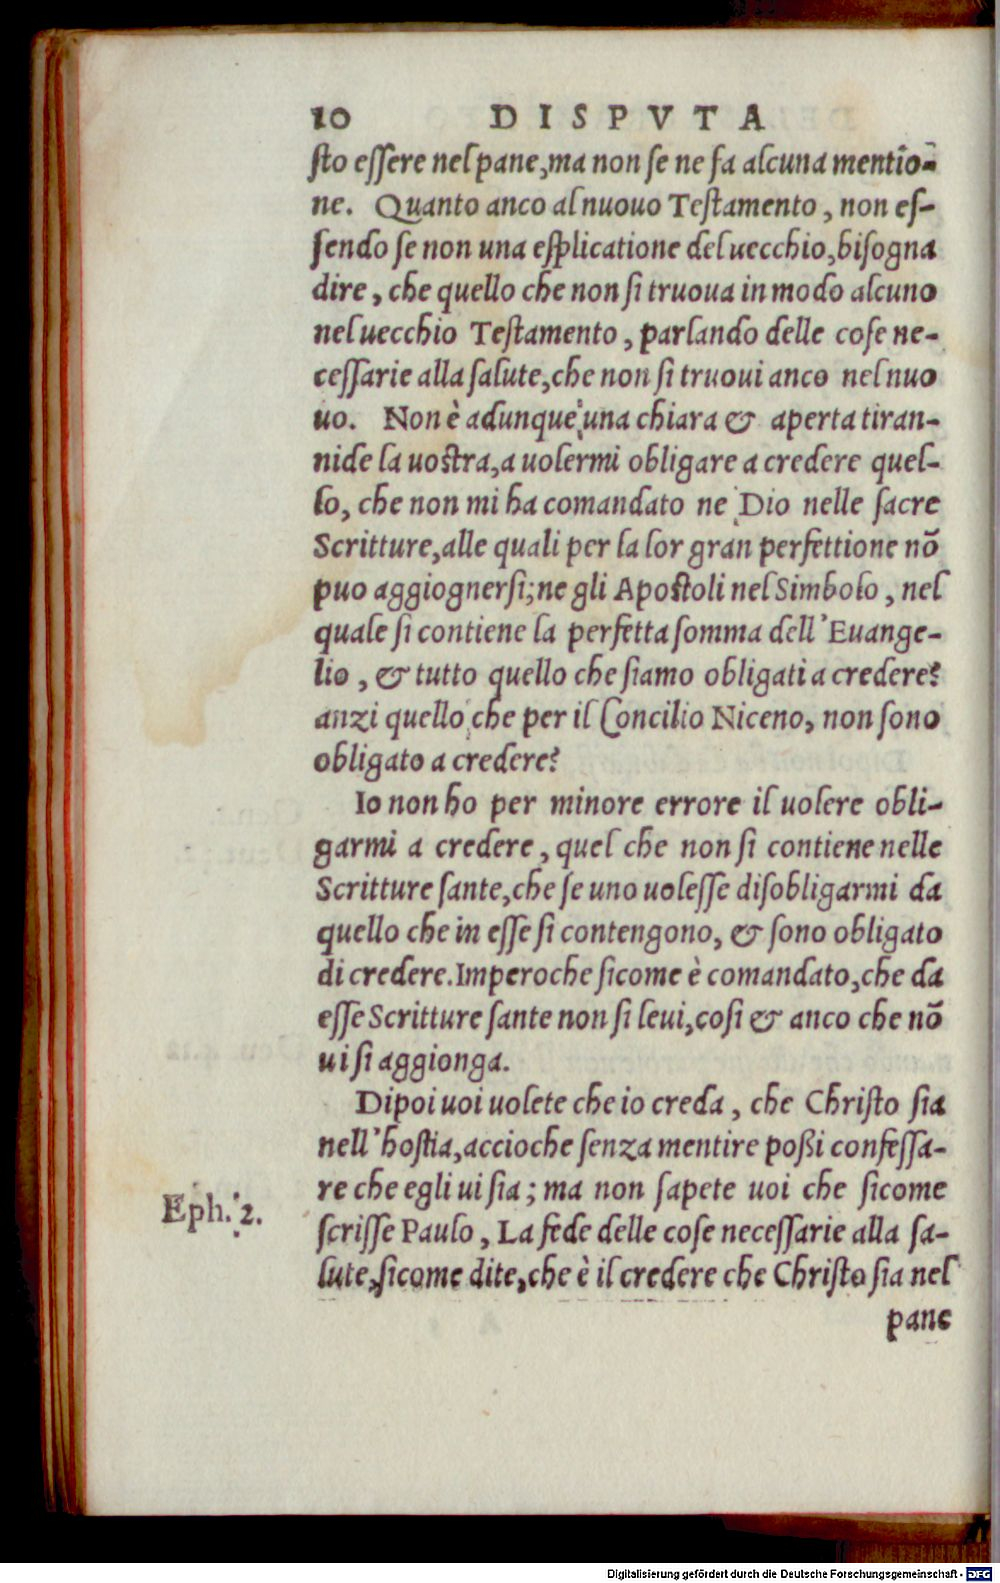 10 DISPVTA
sto essere nel pane, ma non se ne fa alcuna mentio-
ne. Quanto anco al nuouo Testamento, non es-
sendo se non una esplicatione del uecchio, bisogna
dire, che quello che non si truoua in modo alcuno
nel uecchio Testamento, parlando delle cose ne-
cessarie alla salute, che non si truoui anco nel nuo
uo. Non è adunque una chiara & aperta tiran-
nide la uostra, a uolermi obligare a credere quel-
lo, che non mi ha comandato ne Dio nelle sacre
Scritture, alle quali per la lor gran perfettione nō
puo aggiognersi; ne gli Apostoli nel Simbolo, nel
quale si contiene la perfetta somma dell'Euange-
lio, & tutto quello che siamo obligati a credere?
anzi quello che per il Concilio Niceno, non sono
obligato a credere?
Io non ho per minore errore il uolere obli-
garmi a credere, quel che non si contiene nelle
Scritture sante, che se uno uolesse disobligarmi da
quello che in esse si contengono, & sono obligato
di credere. Imperoche sicome è comandato, che da
esse Scritture sante non si leui, cosi & anco che nō
ui si aggionga.
Dipoi uoi uolete che io creda, che Christo sia
nell'hostia, accioche senza mentire poßi confessa-
re che egli ui sia; ma non sapete uoi che sicome
Eph. 2.
scrisse Paulo, La fede delle cose necessarie alla sa-
lute, sicome dite, che è il credere che Christo sia nel
pane
Digitalisierung gefördert durch die Deutsche Forschungsgemeinschaft - DFG